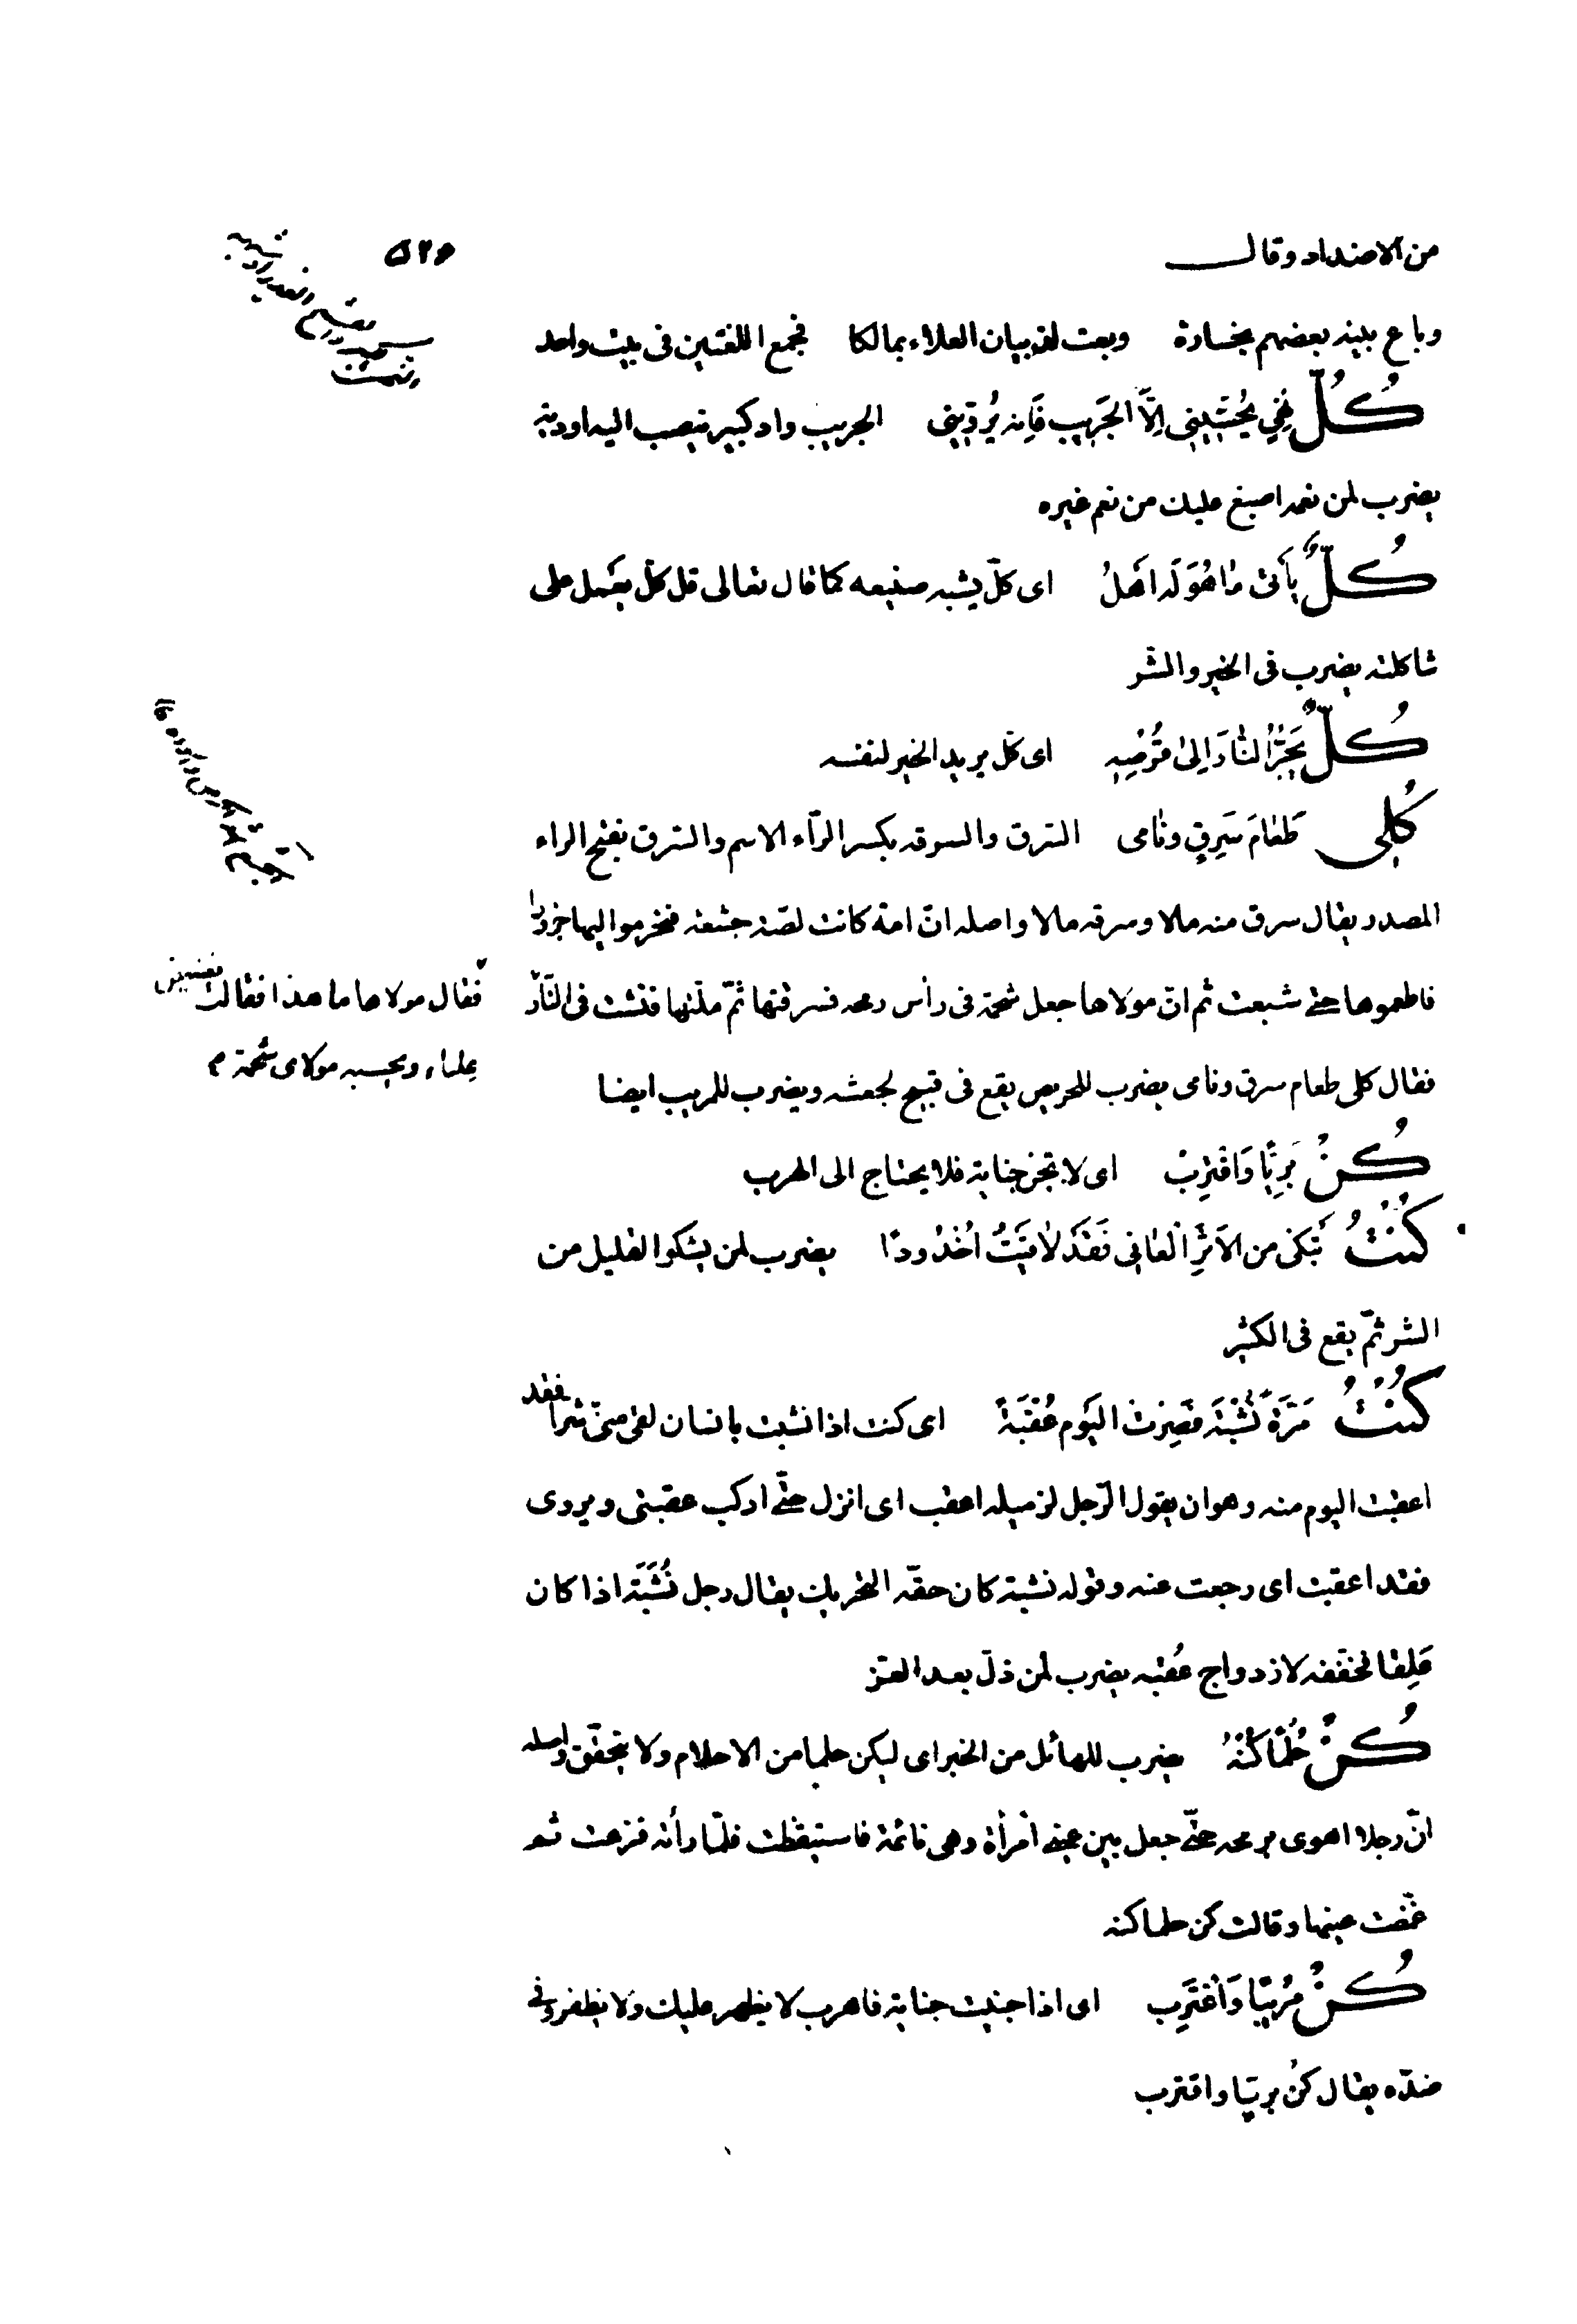 من الاضداد وقال
۵۲۶
وباع بنيه بعضهم بخسارة وبعت لذبيان العلاء بمالكا فجمع اللغتين فى بيت واحد
كُلُّ يُحْسِينِى اِلَّا الجَرِيب فَاِنه يُرْوِينِى الجريب واد كبير تنصب اليه اودية
يضرب لمن نعمه اصبغ عليك من نعم غيره
كُلٌّ يَأتى مٰا هُوَ لَه اَهَلُ اى كلّ يشبه صنيعه كما قال تعالى قل كلّ يعمل على
شاكلته يضرب فى الخير والشّر
كُلٌّ يَجُرُّ النّارَ اِلىٰ قُرْصِهِ اى كلّ يريد الخير لنفسه
كُلِى طَعٰامَ سَرِقٍ ونٰامى السّرق والسرقه بكسر الرّاء الاسم والسّرق بفتح الراء
المصدر يقال سرق منه مالا وسرقه مالا واصله انّ امة كانت لصّة جشعه فنحر مواليها جزورا
فاطعموها حتى شبعت ثم انّ مولاها جعل شحمة فى رأس رمحه فسرقتها ثمّ ملّتها فنشّت فى النّار
فقال مولاها ما هذا فقالت
علباء ويحسبه مولاى شحمة م
فقال كلى طعام سرق ونامى يضرب للحريص يقع فى قبيح لجعشه ويضرب للمريب ايضا
كُنْ بَرِيّا وَاقْتَرِبْ اى لا تجن جناية فلا يحتاج الى الهرب
كُنْتُ تَبْكى من الاَثَرِ الْعٰافِى فَقَدْ لاٰقَيْتُ اُخْدُودًا يضرب لمن يشكوا القليل من
الشر ثمّ يقع فى الكثير
كُنْتُ مَرَّةً نُشْبَةً فَصِرْتُ اليَوم عُقْبَةً اى كنت اذا نشبت بانسان لقى منّى شرا فقد
اعقبت اليوم منه وهو ان يقول الرّجل لزميله اعقب اى انزل حتّى اركب عقبتى ويروى
فقد اعقبت اى رجعت عنه وقوله نشبة كان حقّه التحريك يقال رجل نُشَبَة اذا كان
عَلِقا فخفّفه لازدواج عُقبه يضرب لمن ذلّ بعد العّز
كُنْ حُلْمًا كُنْهُ يضرب للهائل من الخبر اى ليكن حلما من الاحلام ولا يتحقّق واصله
انّ رجلا اهوى برمحه حتّى جعل بين عينى امرأة وهى نائمة فاستيقظت فلمّا رأته فزعت ثم
غمّضت عينها وقالت كن حلما كنه
كُنْ مُرِيبًا وَاغْتَرِب اى اذا جنيت جناية فاهرب لا يظهر عليك ولا يظفر وفى
ضدّه يقال كُن بريّا واقترب